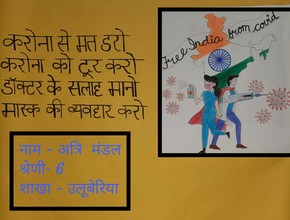 करोना से मत डरो
करोना को दूर करो
डॉक्टर के सलाह मानो
मास्क की व्यवहार करो
Free India from covid
नाम - अत्रि मंडल
श्रेणी- 6
शाखा - उलूबेरिया